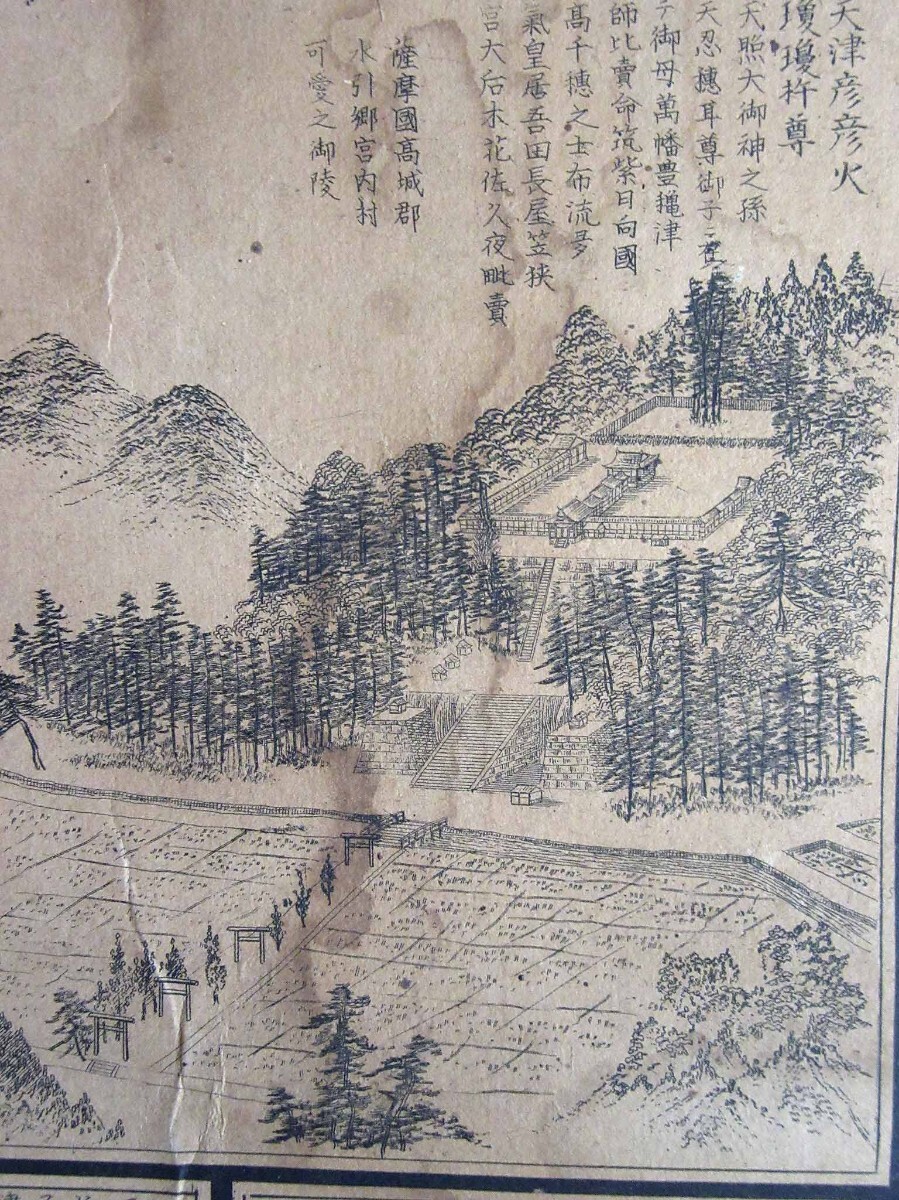 天津彦彦火
瓊瓊杵尊
天照大御神之孫
天忍穂耳尊御子
御母萬幡豊機津
師比賣命筑紫日向國
高千穂之士布流
皇居吾田長屋笠狭
宮大后木花佐久夜毗賣
薩摩國高城郡
水引郷宮内村
可愛之御陵